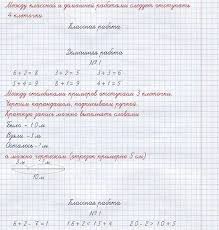 Между классной и домашней работами следует отступать
4 клеточки.
Классная работа
Домашняя работа
№ 1
6 + 2 = 8 3 + 2 = 5 3 + 3 = 6
5 + 4 = 9 8 + 1 = 9 4 + 1 = 5
Между столбиками примеров отступаем 3 клеточки.
Чертим карандашом, подписываем ручкой.
Краткую запись можно выполнять словами
Было - 10 м
Взяли - ? м
Осталось - ? м
а можно чертежом (отрезок примерно 5 см)
10 м
Классная работа
№ 1
6 + 2 - 7 = 1 16 + 2 < 15 + 4 20 - 2 > 10 + 5